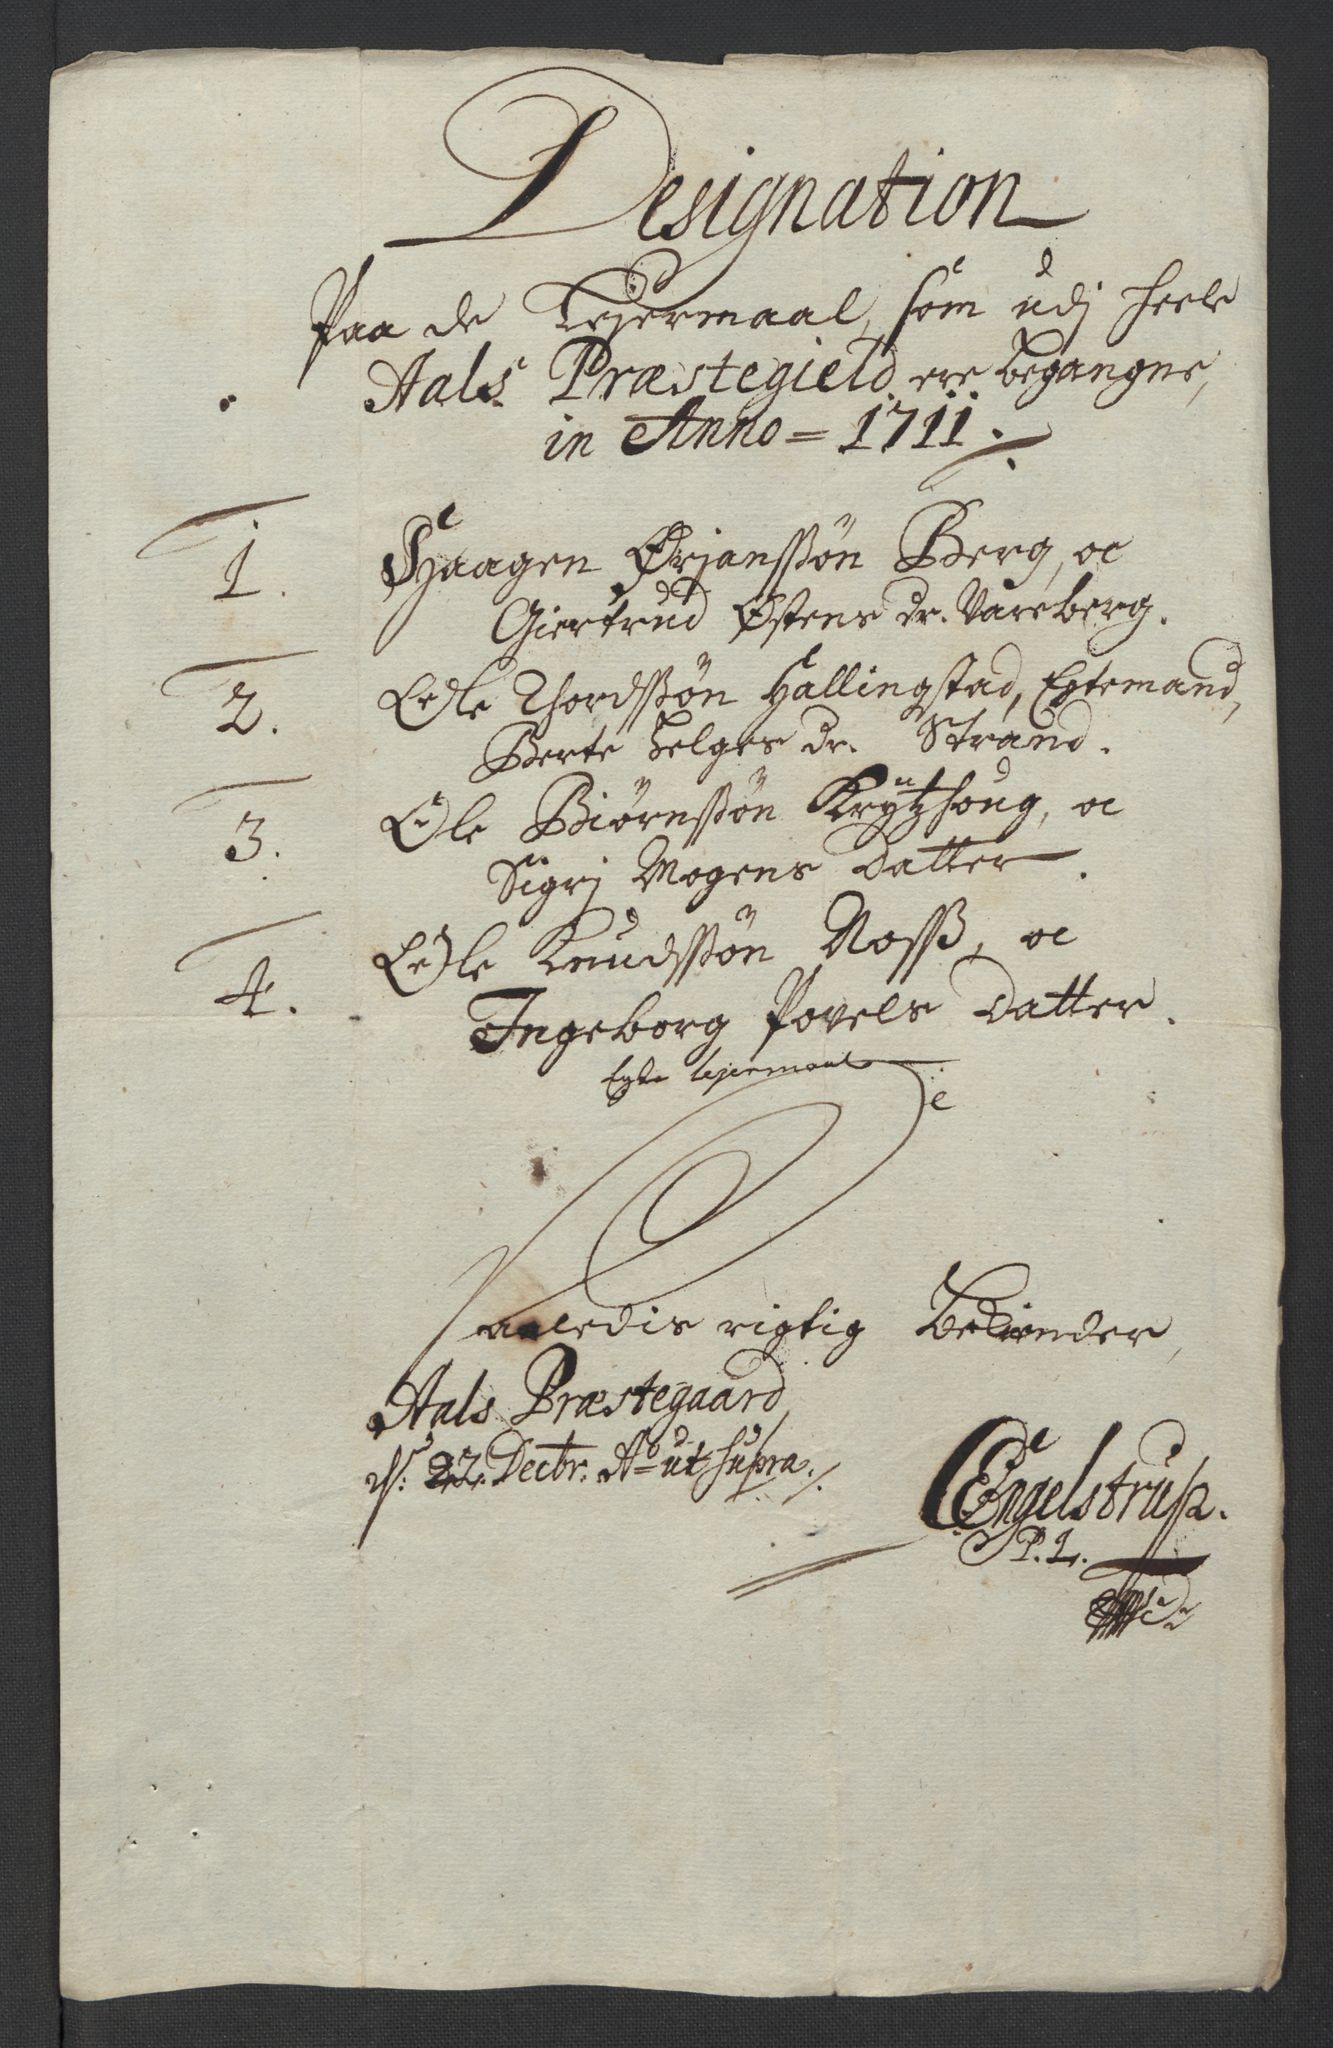 Designation
Paa de Lejermaal, som udj heele
Aals Præstegield ere begangne,
in Anno = 1711.
1. Haagen Ørjanssøn Berg, oc
Giertrud Østens dr. Vareberg.
2. Ole Thordssøn Hallingstad, Egtemand,
Berte Helges dr. Strand.
3. Ole Biørnssøn Krÿtzhoug, oc
Sigrj Mogens Datter.
4. Ole Knudssøn Noss, oc
Ingeborg Povels Datter.
Egte lejermaal
Saaledis rigtig Bekiender,
Aals Præstegaard,
d. 22. Decbr. Ao ut supra.
Engelstrup.
P. L.